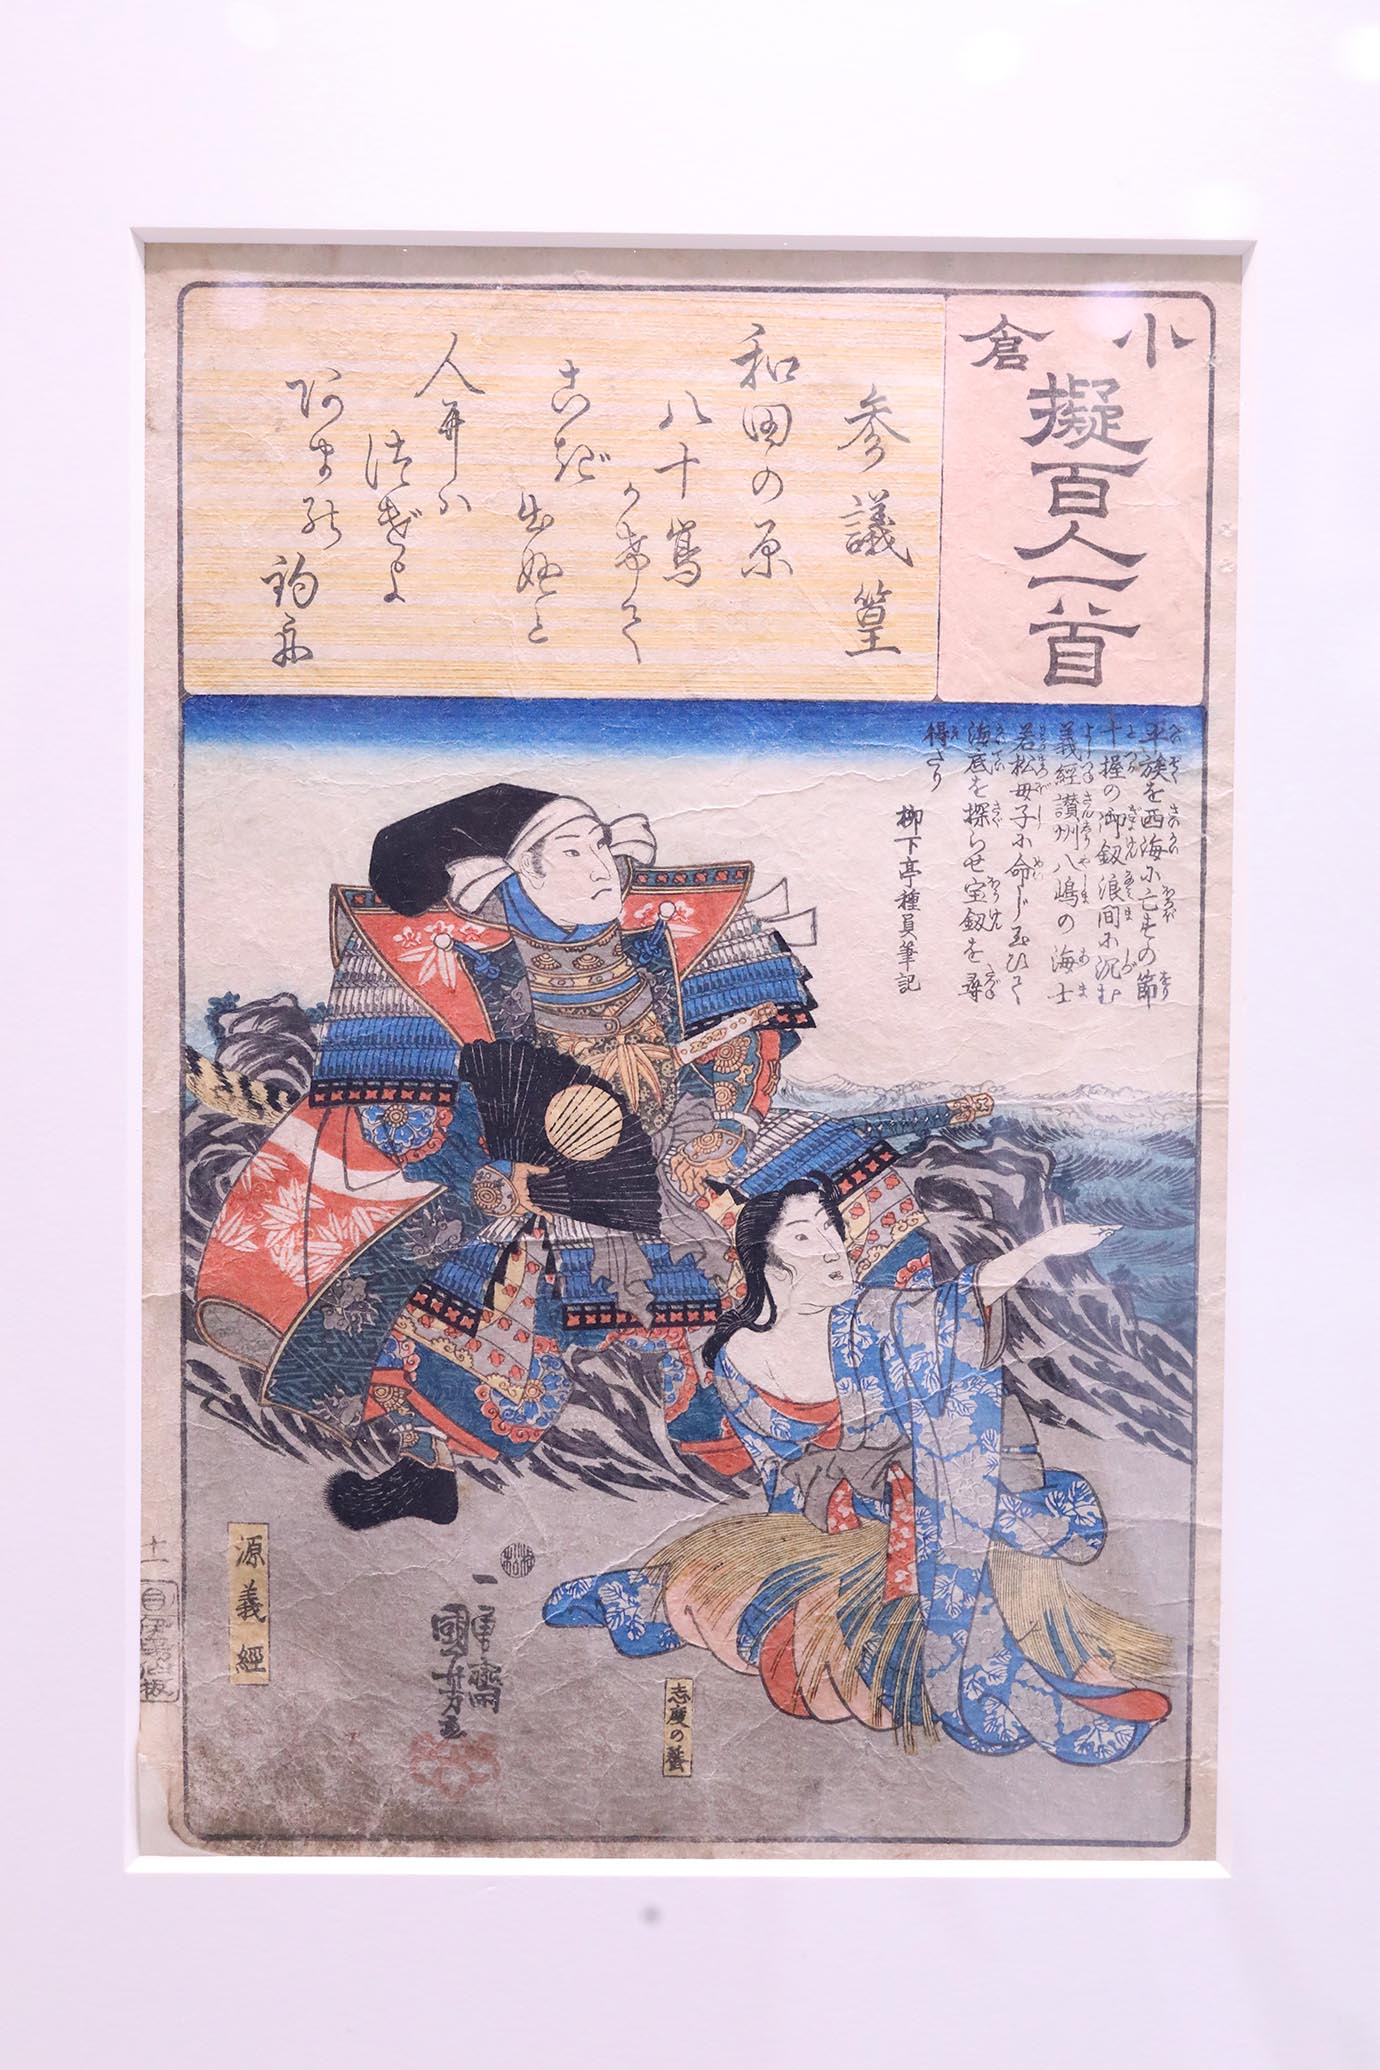 小倉
擬百人一首
参議篁
和田の原
八十嶌
かけて
こぎ
出ぬと
人丹ハ
つげよ
あまの
釣舟
平族を西海に亡すの節
十握の御釼浪間に沈む
義經讃州八嶋の海士
若松母子に命じ
海底を探らせ宝釼を尋
得たり
柳下亭種員筆記
源義經
志度の蜑
一勇齋
國芳画
十一